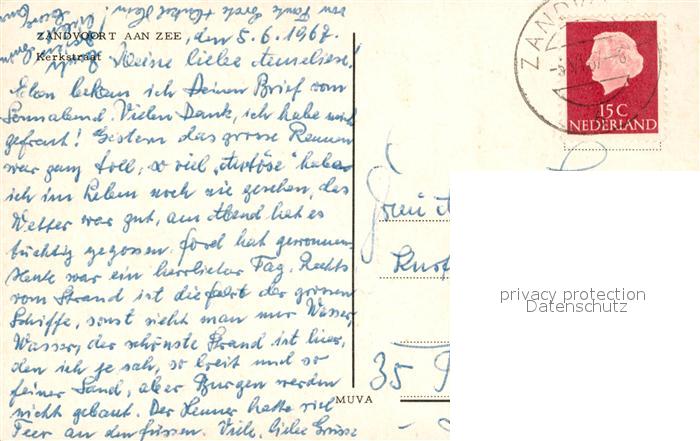 ZANDVOORT AAN ZEE, den 5.6.1967.
Kerkstraat
Meine liebe Anneliese!
Eben bekam ich Deinen Brief vom
Sonnabend. Vielen Dank, ich habe mich
gefreut! Gestern das grosse Rennen
war ganz toll, so viel "Autöse" habe
ich im Leben noch nie gesehen, das
Wetter war gut, am Abend hat es
tüchtig gegossen. Ford hat gewonnen.
Heute war ein herrlicher Tag. Rechts
vom Strand ist die Fahrt der grossen
Schiffe, sonst sieht man nur Wasser,
Wasser, der schönste Strand ist hier,
den ich je sah, so breit und so
feiner Sand, aber Burgen werden
nicht gebaut. Der Henner hatte viel
Teer an den Füssen. Viele, liebe Grüsse
MUVA
ZANDV
15 C
NEDERLAND
Frau
35
privacy protection
Datenschutz